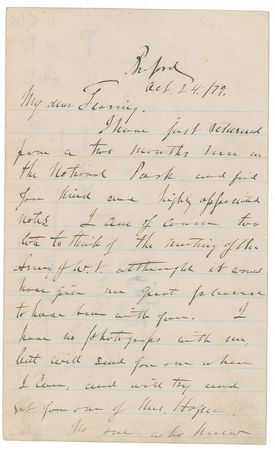 Oct 24./79.
My dear Fearing.
I have just returned
from a two months run in
the National Park and find
your kind and highly appreciated
note. I am of course too
late to think of the meeting of the
Army of W. V. although it would
have given me great pleasure
to have been with you. I
have no photographs with me,
but will send you one when
I can, and will try and
get you one of Mrs.
No one who knew